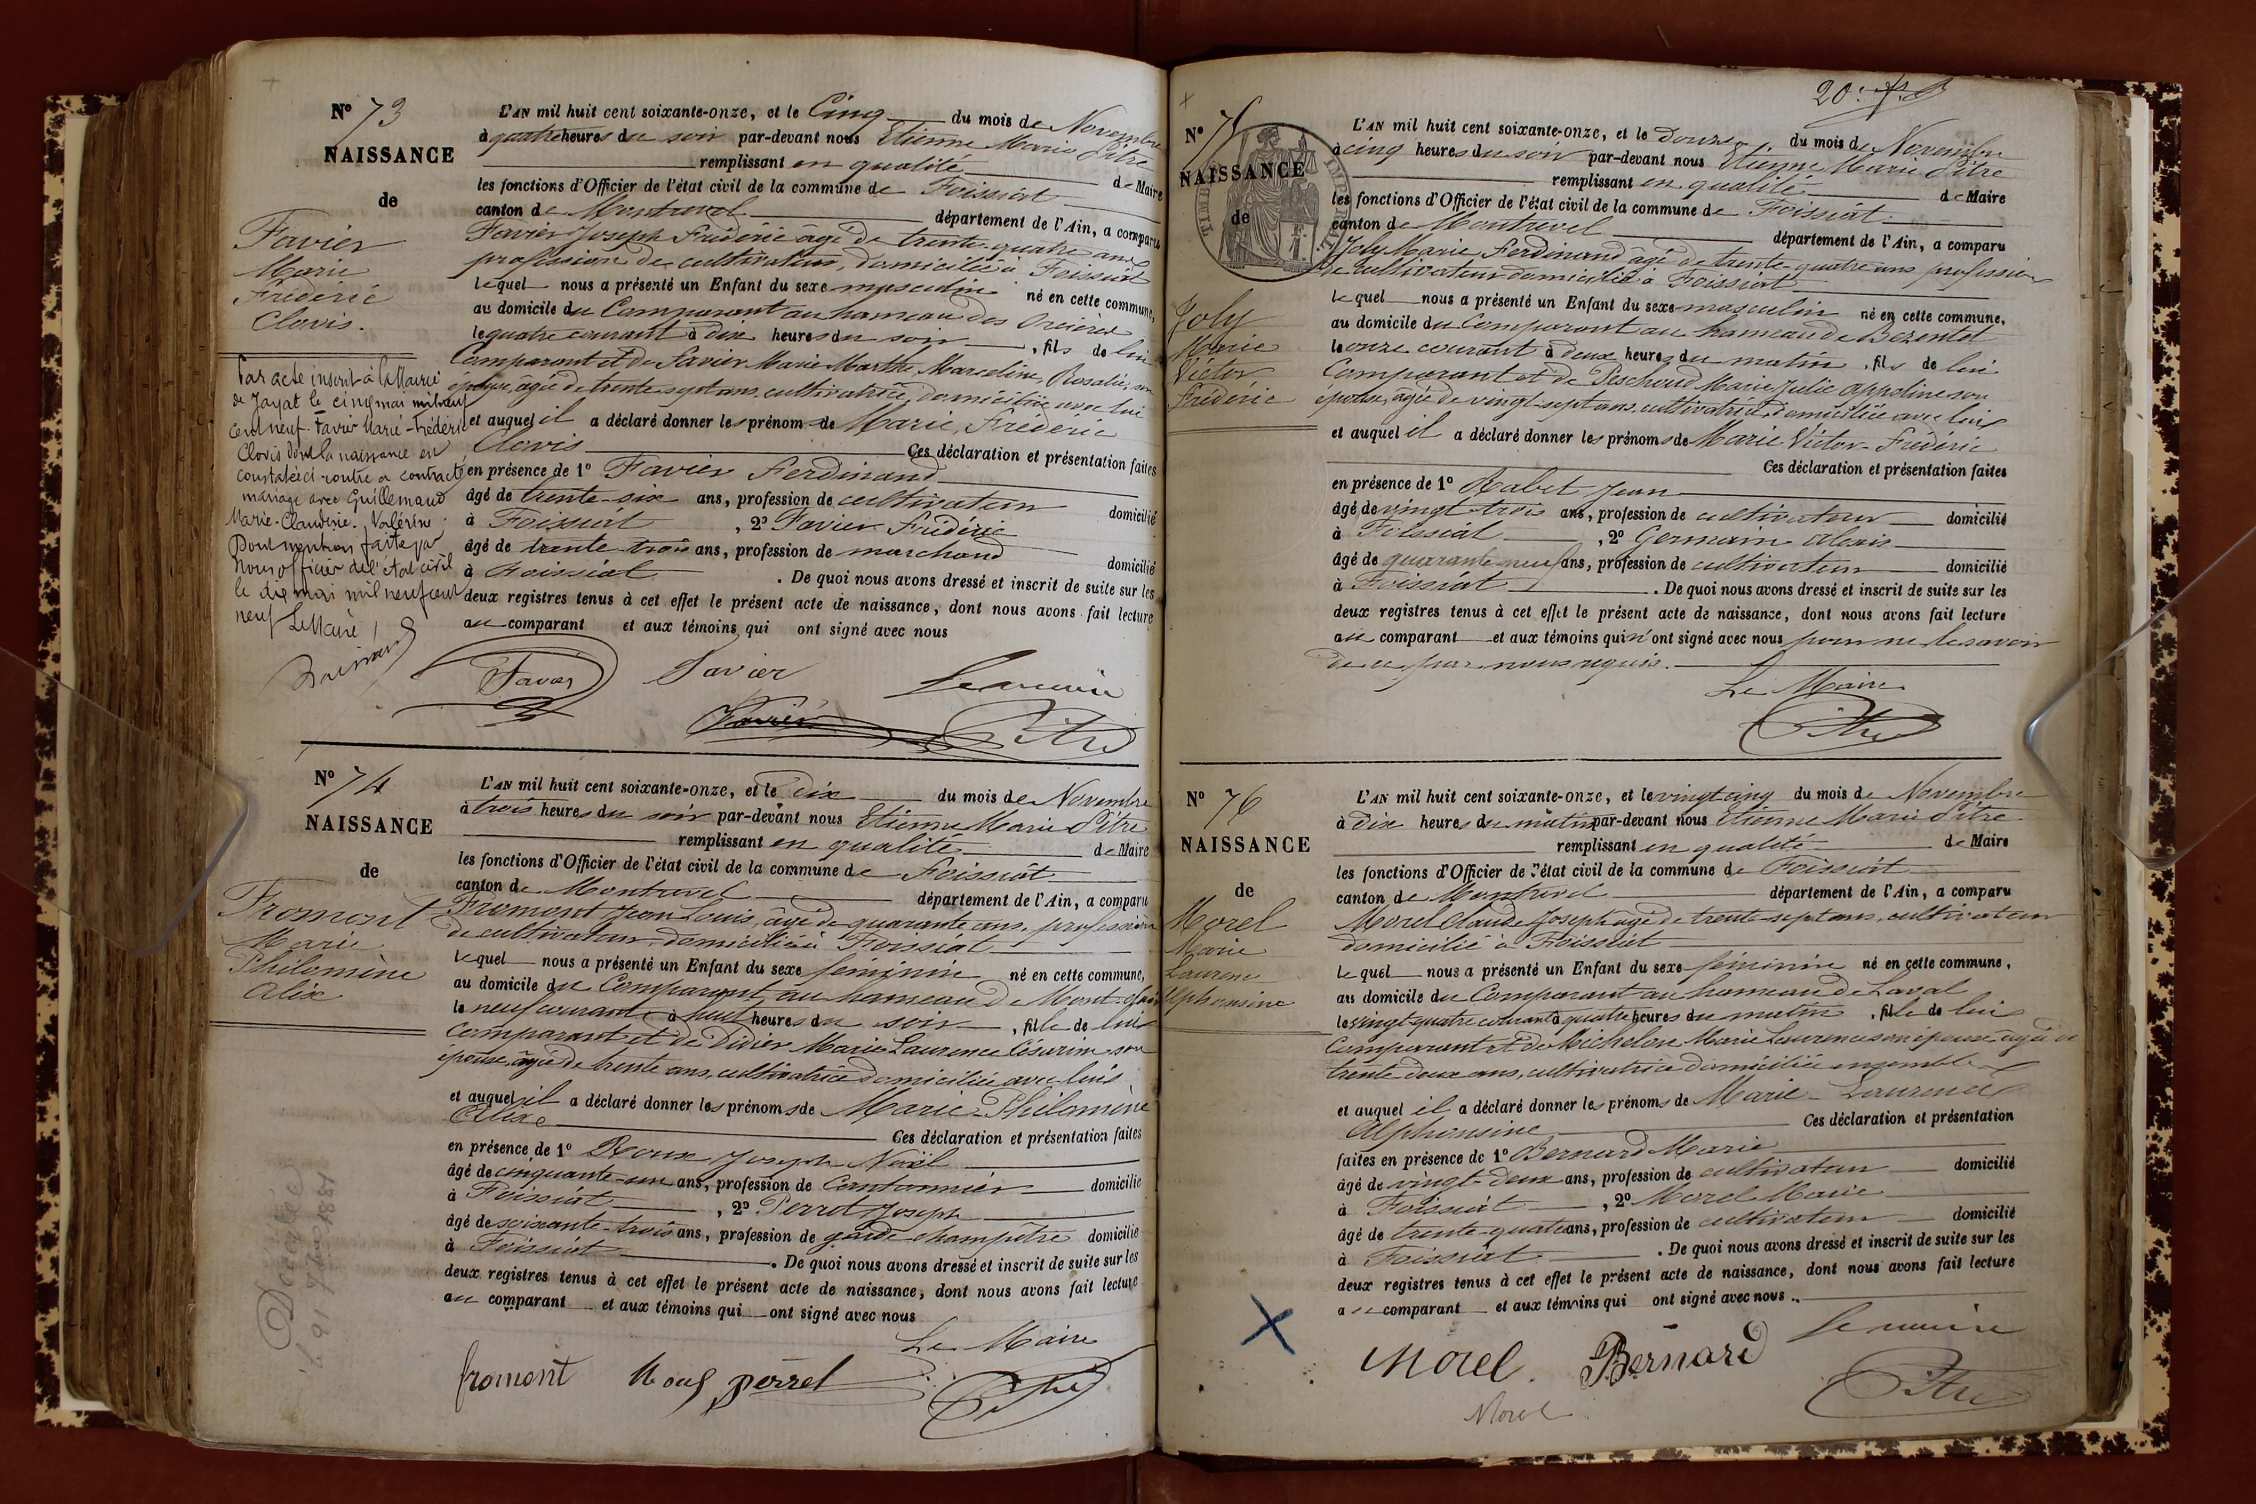 N° 73
NAISSANCE
de
Favier
Marie
Frédéric
Clovis.
Par acte inscrit à la Mairie
de Jayat le cinq mai mil neuf
cent neuf Favier Marie-Frédéric
Clovis dont la naissance est
constatée ci-contre a contracté
mariage avec Guillemaud
Marie-Claudine-Valérine
Dont mention faite par
Nous officier de l'état civil
le dix mai mil neuf cent
neuf Le Maire
L'AN mil huit cent soixante-onze, et le Cinq du mois de Novembre
à quatre heures du soir par-devant nous Etienne Marie Pitre
remplissant en qualité de Maire
les fonctions d'Officier de l'état civil de la commune de Foissiat
canton de Montrevel département de l'Ain, a comparu
Favier Joseph Frédéric âgé de trente-quatre ans
profession de cultivateur, domicilié à Foissiat
lequel nous a présenté un Enfant du sexe masculin né en cette commune,
au domicile du Comparant au hameau des
le quatre courant à dix heures du soir, fils de lui
Comparant et de Favier Marie Marthe Marceline, Rosalie, son
épouse, agée de trente sept ans, cultivatrice, domiciliée avec lui
et auquel il a déclaré donner les prénoms de Marie, Frédéric
Clovis Ces déclaration et présentation faites
en présence de 1° Favier Ferdinand
âgé de trente-six ans, profession de cultivateur domicilié
à Foissiat, 2° Favier Frédéric
âgé de trente trois ans, profession de marchand domicilié
à Foissiat. De quoi nous avons dressé et inscrit de suite sur les
deux registres tenus à cet effet le présent acte de naissance, dont nous avons fait lecture
au comparant et aux témoins qui ont signé avec nous
Favier Favier Le maire
Favier Pitre
N° 74
NAISSANCE
de
Fromont
Marie
Philomène
Alix
Décédée
le 16 7bre 1881
L'AN mil huit cent soixante-onze, et le Dix du mois de Novembre
à trois heures du soir par-devant nous Etienne Marie Pitre
remplissant en qualité de Maire
les fonctions d'Officier de l'état civil de la commune de Foissiat
canton de Montrevel département de l'Ain, a comparu
Fromont Jean Louis, âgé de quarante ans, profession
de cultivateur, domicilié à Foissiat
lequel nous a présenté un Enfant du sexe féminin né en cette commune,
au domicile du Comparant, au hameau de
le neuf courant à huit heures du soir, fille de lui
comparant et de Didier Marie Laurence Césarine son
épouse, âgée de trente ans, cultivatrice domiciliée avec lui
et auquel il a déclaré donner les prénoms de Marie-Philomène
Alix Ces déclaration et présentation faites
en présence de 1° Roux Joseph Noël
âgé de cinquante-un ans, profession de Cantonnier domicilié
à Foissiat, 2° Perrot Joseph
âgé de soixante-trois ans, profession de garde champêtre domicilié
à Foissiat. De quoi nous avons dressé et inscrit de suite sur les
deux registres tenus à cet effet le présent acte de naissance, dont nous avons fait lecture
au comparant et aux témoins qui ont signé avec nous
Le Maire
fromont Roux perret Pitre
N° 75
NAISSANCE
de
Joly
Marie
Victor
Frédéric
L'AN mil huit cent soixante-onze, et le Douze du mois de Novembre
à cinq heures du soir par-devant nous Etienne Marie Pitre
remplissant en qualité de Maire
les fonctions d'Officier de l'état civil de la commune de Foissiat
canton de Montrevel département de l'Ain, a comparu
Joly Marie Ferdinand âgé de trente-quatre ans profession
de cultivateur domicilié à Foissiat
lequel nous a présenté un Enfant du sexe masculin né en cette commune,
au domicile du Comparant au hameau de Bezentet
le onze courant à deux heures du matin, fils de lui
Comparant et de Peschoud Marie Julie Appoline son
épouse, âgée de vingt-sept ans, cultivatrice domiciliée avec lui
et auquel il a déclaré donner les prénoms de Marie Victor-Frédéric
Ces déclaration et présentation faites
en présence de 1° Rabet Jean
âgé de vingt trois ans, profession de cultivateur domicilié
à Foissiat, 2° Germain Alexis
âgé de quarante neuf ans, profession de cultivateur domicilié
à Foissiat. De quoi nous avons dressé et inscrit de suite sur les
deux registres tenus à cet effet le présent acte de naissance, dont nous avons fait lecture
au comparant et aux témoins qui n'ont signé avec nous pour ne le savoir
de ce par nous requis.
Le Maire
Pitre
N° 76
NAISSANCE
de
Morel
Marie
Laurence
Alphonsine
L'AN mil huit cent soixante-onze, et le vingt cinq du mois de Novembre
à dix heures du matin par-devant nous Etienne Marie Pitre
remplissant en qualité de Maire
les fonctions d'Officier de l'état civil de la commune de Foissiat
canton de Montrevel département de l'Ain, a comparu
Morel Claude Joseph agé de trente-sept ans, cultivateur
domicilié à Foissiat
lequel nous a présenté un Enfant du sexe féminin né en cette commune,
au domicile du Comparant au hameau de Laval
le vingt quatre courant à quatre heures du matin, fille de lui
Comparant et de Michelon Marie Laurence son épouse âgée de
trente deux ans, cultivatrice domiciliée ensemble
et auquel il a déclaré donner les prénoms de Marie-Laurence
Alphonsine Ces déclaration et présentation
faites en présence de 1° Bernard Marie
âgé de vingt-deux ans, profession de cultivateur domicilié
à Foissiat, 2° Morel Marie
âgé de trente-quatre ans, profession de cultivateur domicilié
à Foissiat. De quoi nous avons dressé et inscrit de suite sur les
deux registres tenus à cet effet le présent acte de naissance, dont nous avons fait lecture
au comparant et aux témoins qui ont signé avec nous.
Le maire
Morel. Bernard Pitre
Morel